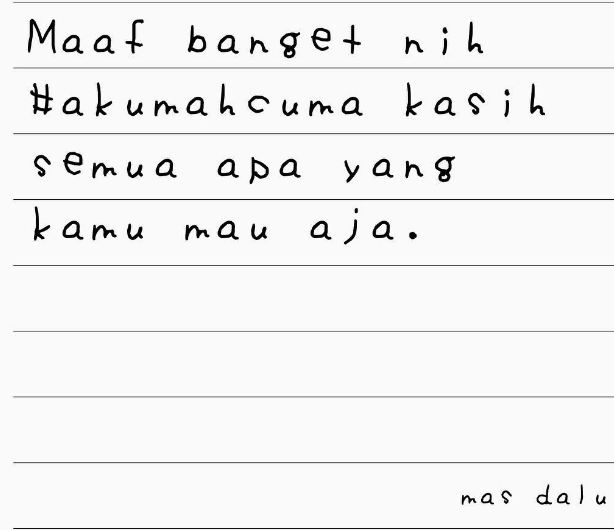 Maaf banget nih
#akumahcuma kasih
semua apa yang
kamu mau aja.
mas dalu